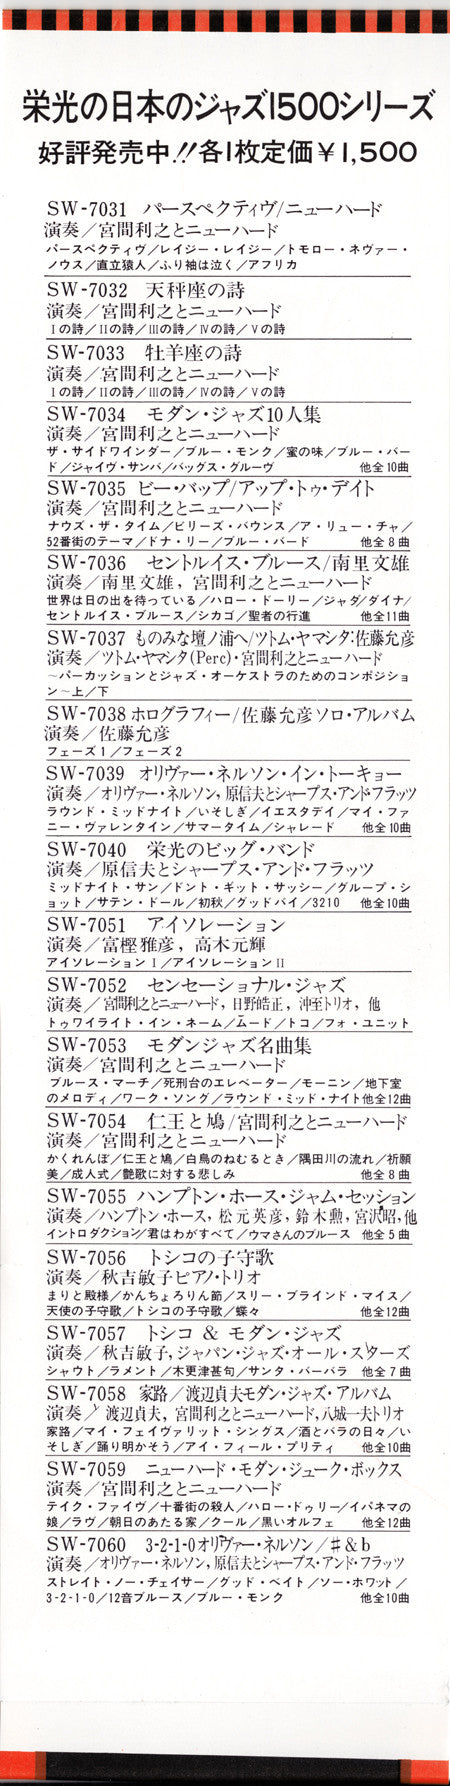 栄光の日本のジャズ1500シリーズ
好評発売中!!各1枚定価￥1,500
SW-7031 パースペクティヴ/ニューハード
演奏／宮間利之とニューハード
パースペクティヴ／レイジー・レイジー／トモロー・ネヴァー・
ノウス／直立猿人／ふり袖は泣く／アフリカ
SW-7032 天秤座の詩
演奏／宮間利之とニューハード
Ⅰの詩／Ⅱの詩／Ⅲの詩／Ⅳの詩／Ⅴの詩
SW-7033 牡羊座の詩
演奏／宮間利之とニューハード
Ⅰの詩／Ⅱの詩／Ⅲの詩／Ⅳの詩／Ⅴの詩
SW-7034 モダン・ジャズ10人集
演奏／宮間利之とニューハード
ザ・サイドワインダー／ブルー・モンク／蜜の味／ブルー・バー
ド／ジャイヴ・サンバ／バッグス・グルーヴ 他全10曲
SW-7035 ビー・バップ/アップ・トゥ・デイト
演奏／宮間利之とニューハード
ナウズ・ザ・タイム／ビリーズ・バウンス／ア・リュー・チャ／
52番街のテーマ／ドナ・リー／ブルー・バード 他全8曲
SW-7036 セントルイス・ブルース/南里文雄
演奏／南里文雄, 宮間利之とニューハード
世界は日の出を待っている／ハロー・ドーリー／ジャダ／ダイナ／
セントルイス・ブルース／シカゴ／聖者の行進 他全11曲
SW-7037 ものみな壇ノ浦へ/ツトム・ヤマシタ:佐藤允彦
演奏／ツトム・ヤマシタ(Perc)・宮間利之とニューハード
〜パーカッションとジャズ・オーケストラのためのコンポジショ
ン〜上／下
SW-7038 ホログラフィー/佐藤允彦ソロ・アルバム
演奏／佐藤允彦
フェーズ1／フェーズ2
SW-7039 オリヴァー・ネルソン・イン・トーキョー
演奏／オリヴァー・ネルソン, 原信夫とシャープス・アンド・フラッツ
ラウンド・ミッドナイト／いそしぎ／イエスタデイ／マイ・ファ
ニー・ヴァレンタイン／サマータイム／シャレード 他全10曲
SW-7040 栄光のビッグ・バンド
演奏／原信夫とシャープス・アンド・フラッツ
ミッドナイト・サン／ドント・ギット・サッシー／グループ・シ
ョット／サテン・ドール／初秋／グッドバイ／3210 他全10曲
SW-7051 アイソレーション
演奏／富樫雅彦, 高木元輝
アイソレーションⅠ／アイソレーションⅡ
SW-7052 センセーショナル・ジャズ
演奏／宮間利之とニューハード, 日野皓正, 沖至トリオ, 他
トゥワイライト・イン・ネーム／ムード／トコ／フォ・ユニット
SW-7053 モダンジャズ名曲集
演奏／宮間利之とニューハード
ブルース・マーチ／死刑台のエレベーター／モーニン／地下室
のメロディ／ワーク・ソング／ラウンド・ミッド・ナイト他全12曲
SW-7054 仁王と鳩/宮間利之とニューハード
演奏／宮間利之とニューハード
かくれんぼ／仁王と鳩／白鳥のねむるとき／隅田川の流れ／祈願
美／成人式／艶歌に対する悲しみ 他全8曲
SW-7055 ハンプトン・ホース・ジャム・セッション
演奏／ハンプトン・ホース, 松元英彦, 鈴木勲, 宮沢昭, 他
イントロダクション／君はわがすべて／ウマさんのブルース 他全5曲
SW-7056 トシコの子守歌
演奏／秋吉敏子ピアノ・トリオ
まりと殿様／かんちょろりん節／スリー・ブラインド・マイス／
天使の子守歌／トシコの子守歌／蝶々 他全12曲
SW-7057 トシコ & モダン・ジャズ
演奏／秋吉敏子, ジャパン・ジャズ・オール・スターズ
シャウト／ラメント／木更津甚句／サンタ・バーバラ 他全7曲
SW-7058 家路／渡辺貞夫モダン・ジャズ・アルバム
演奏／渡辺貞夫, 宮間利之とニューハード, 八城一夫トリオ
家路／マイ・フェイヴァリット・シングス／酒とバラの日々／い
そしぎ／踊り明かそう／アイ・フィール・プリティ 他全10曲
SW-7059 ニューハード・モダン・ジューク・ボックス
演奏／宮間利之とニューハード
テイク・ファイヴ／十番街の殺人／ハロー・ドゥリー／イパネマの
娘／ラヴ／朝日のあたる家／クール／黒いオルフェ 他全12曲
SW-7060 3-2-1-0オリヴァー・ネルソン/♯&b
演奏／オリヴァー・ネルソン, 原信夫とシャープス・アンド・フラッツ
ストレイト・ノー・チェイサー／グッド・ベイト／ソー・ホワット／
3-2-1-0／12音ブルース／ブルー・モンク 他全10曲